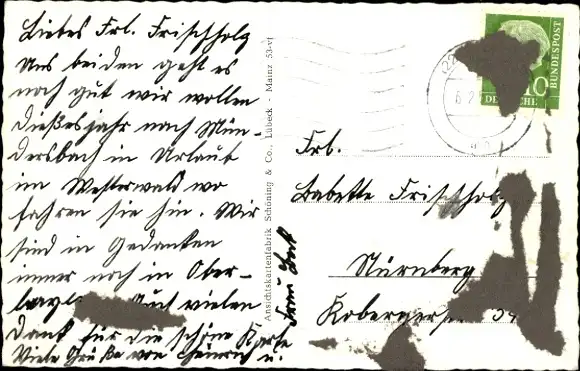 Liebes Frl. Frischholz
Uns beiden geht es
noch gut wir wollen
dießesjahr nach Mün-
dersbach in Urlaub
im Westerwald wo
fahren sie hin. Wir
sind in Gedanken
immer noch in Ober-
Auch vielen
Dank für die schöne Karte
Viele Grüße von Heinrich u.
Ansichtskartenfabrik Schöning & Co., Lübeck - Mainz 53-vf
DEUTSCHE
BUNDESPOST
10
Frl.
Babette Frischholz
Nürnberg
Kobergerstr.